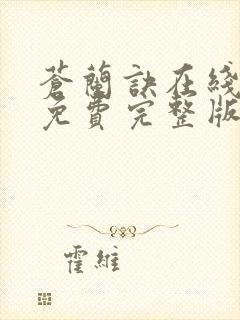 蒼蘭訣在綫
免費完整版
霍維